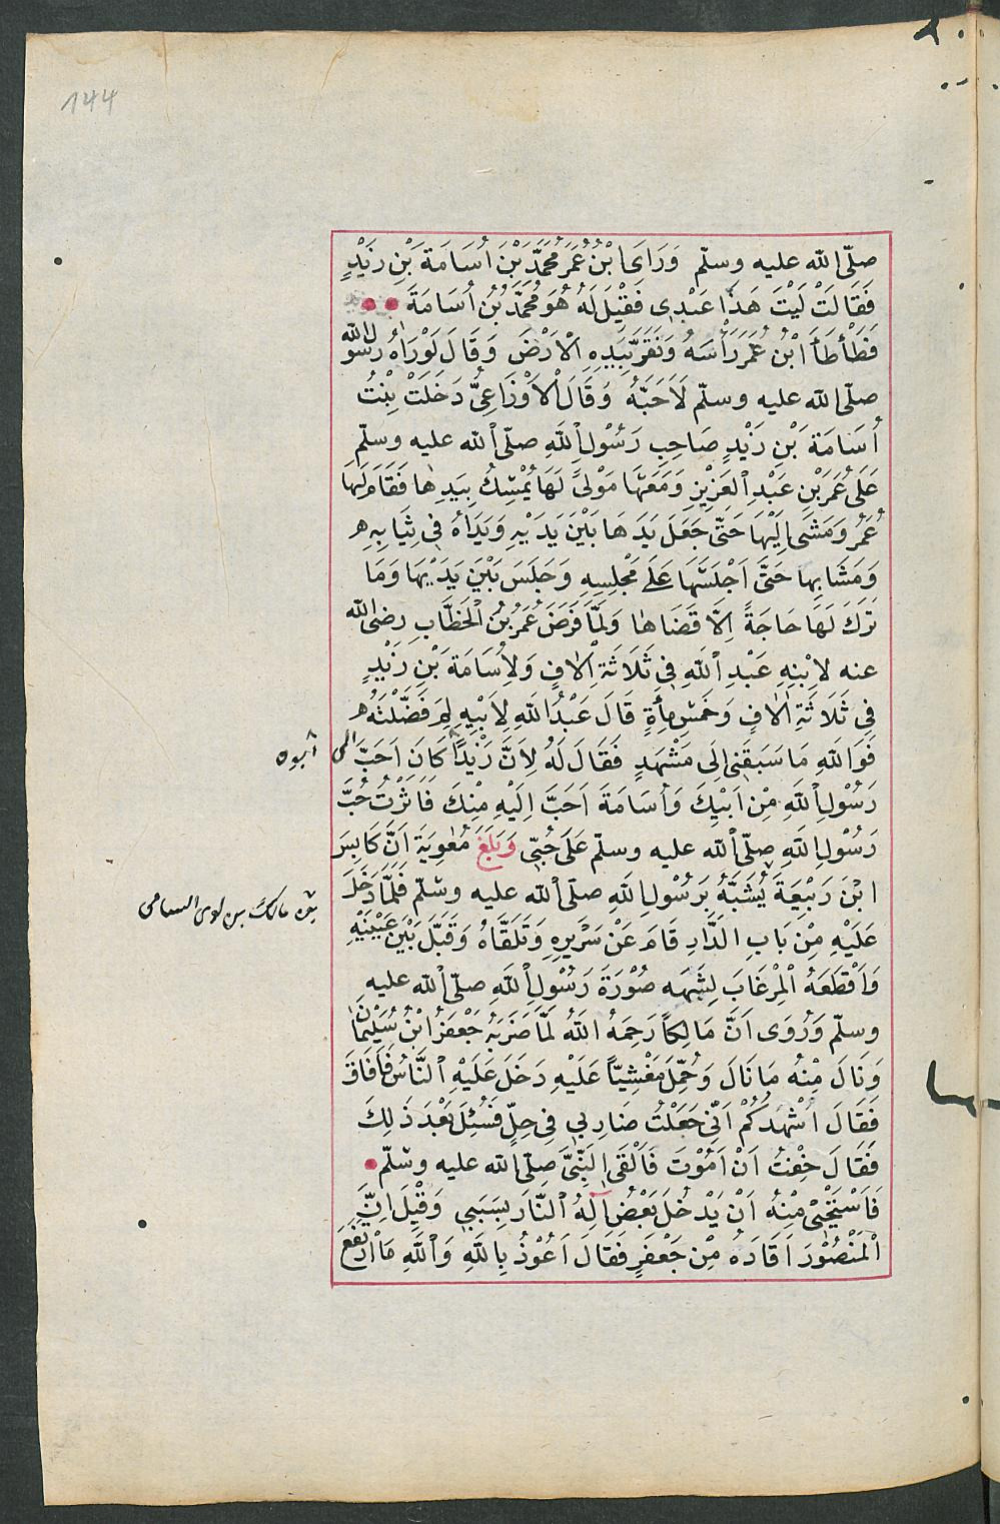 144
صلّى الله عليه وسلّم وَرَاَى ابْنُ عُمَرَ مُحَمَّدَ بْنَ اُسَامَةَ بْنِ زَيْدٍ
فَقَالَتْ لَيْتَ هَذَا عَبْدِى فَقِيْلَ لَهُ هُوَ مُحَمَّدُ بْنُ اُسَامَةَ
فَطَأْطَأَ ابْنُ عُمَرَ رَأْسَهُ وَنَقَرَ بِيَدِهِ اْلاَرْضَ وَقَالَ لَوْرَاٰهُ رَسُولُ الله
صلّى الله عليه وسلّم لَاَحَبَّهُ وَقَالَ اْلاَوْزَاعِىُّ دَخَلَتْ بِنْتُ
اُسَامَةَ بْنِ زَيْدٍ صَاحِبِ رَسُوْلِ اللهِ صلّى الله عليه وسلّم
عَلَى عُمَرَ بْنِ عَبْدِ الْعَزِيْزِ وَمَعَهَا مَوْلىً لَهَا يُمْسِكُ بِيَدِهٰا فَقَامَ لَهَا
عُمَرُ وَمَشَى اِلَيْهَا حَتَّى جَعَلَ يَدَهَا بَيْنَ يَدَيْهِ وَيَدَاهُ فِى ثِيَابِهِ
وَمَشَابِهَا حَتَّى اَجْلَسَهَا عَلَى مَجْلِسِهِ وَجَلَسَ بَيْنَ يَدَيْهَا وَمَا
تَرَكَ لَهَا حَاجَةً اِلَّا قَضَاهٰا وَلَمَّا فَرَضَ عُمَرُ بْنُ الْخَطَّابِ رضى الله
عنه لِابْنِهِ عَبْدِ اللهِ فِى ثَلَاثَةِ اٰلاٰفٍ وَلِاُسَامَةَ بْنِ زَيْدٍ
فِى ثَلَاثَةِ اٰلاٰفٍ وَخَمْسِ مِأَةٍ قَالَ عَبْدُ اللهِ لِاَبِيْهِ لِمَ فَضَّلْتَهُ
فَوَاللهِ مَا سَبَقَنِى اِلَى مَشْهَدٍ فَقَالَ لَهُ لِاَنَّ زَيْدًا كَانَ اَحَبَّ الى
ابوه
رَسُوْلِ اللهِ مِنْ اَبِيْكَ وَاُسَامَةَ اَحَبَّ اِلَيْهِ مِنْكَ فَاٰثَرْتُ حُبَّ
رَسُوْلِ اللهِ صلّى الله عليه وسلّم عَلَى حُبِّى وَبَلَغَ مُعٰوِيَةَ اَنَّ كَابِسَ
ابْنَ رَبِيْعَةَ يُشَبَّهُ بِرَسُوْلِ اللهِ صلّى الله عليه وسلّم فَلَمَّا دَخَلَ
بن مالك بن لوى السامى
عَلَيْهِ مِنْ بَابِ الدَّارِ قَامَ عَنْ سَرِيْرِهِ وَتَلَقَّاهُ وَقَبَّلَ بَيْنَ عَيْنَيْهِ
وَاَقْطَعَهُ الْمِرْغَابَ لِشَبَهِهِ صُوْرَةَ رَسُوْلِ اللهِ صلّى الله عليه
وسلّم وَرُوِىَ اَنَّ مَالِكاً رَحِمَهُ اللهُ لَمَّا ضَرَبَهُ جَعْفَرُ ابْنُ سُلَيْمٰانَ
وَنَالَ مِنْهُ مَا نَالَ وَحُمِّلَ مَغْشِيّاً عَلَيْهِ دَخَلَ عَلَيْهِ النَّاسُ فَاَفَاقَ
فَقَالَ اُشْهِدُكُمْ اَنّى جَعَلْتُ ضَارِبِى فِى حِلٍّ فَسُئِلَ بَعْدَ ذٰلِكَ
فَقَالَ خِفْتُ اَنْ اَمُوْتَ فَاَلْقَى النَّبِىَّ صلّى الله عليه وسلّم
فَاَسْتَحْيِىْ مِنْهُ اَنْ يَدْخُلَ بَعْضُ اٰلِهُ النَّارَ بِسَبَبِى وَقِيْلَ اِنَّ
الْمَنْصُوْرَ اَقَادَهُ مِنْ جَعْفَرٍ فَقَالَ اَعُوْذُ بِاللهِ وَاللهِ مَا ارْتَفَعَ